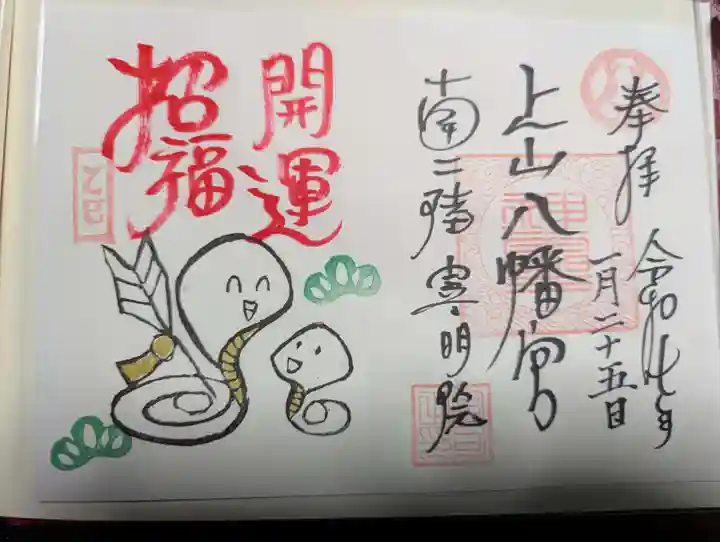 奉拝
令和七年
一月二十五日
上山八幡宮
南三陸 寄明院
開運
招福
乙巳